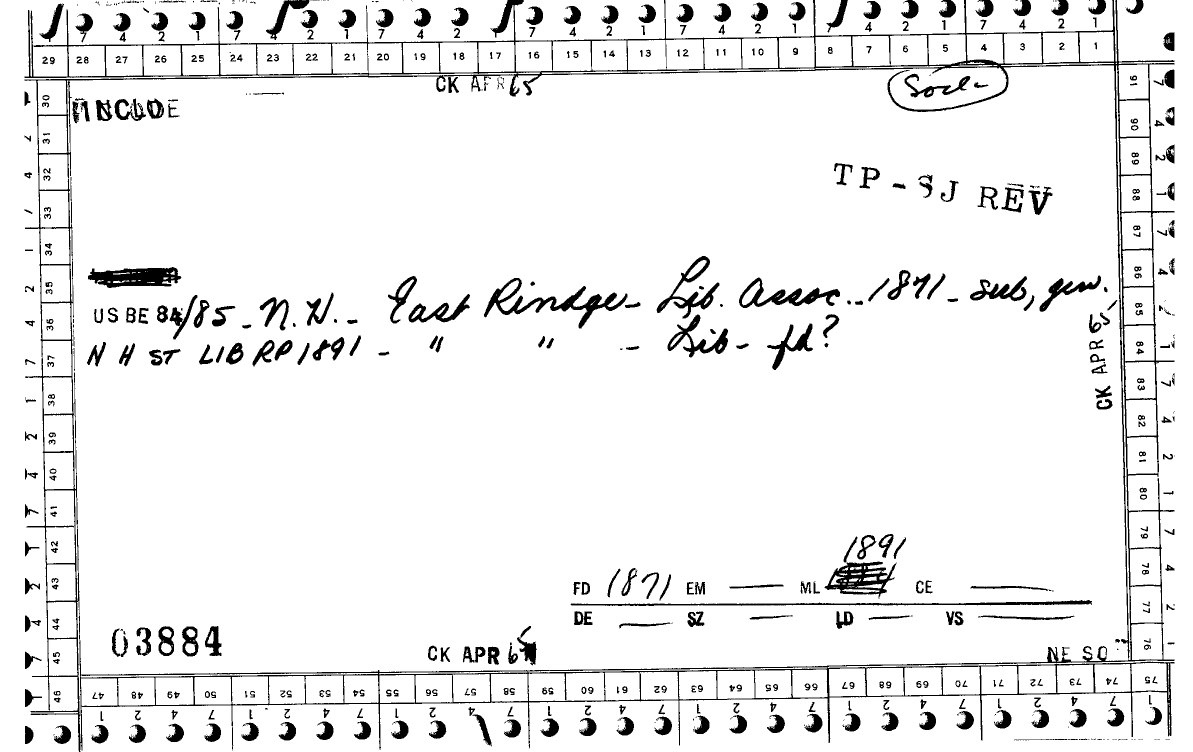 7 4 2 1 7 4 2 1 7 4 2 1 7 4 2 1 7 4 2 1 7 4 2 1 7 4 2 1
29 28 27 26 25 24 23 22 21 20 19 18 17 16 15 14 13 12 11 10 9 8 7 6 5 4 3 2 1
CK APR 65
INCLUDE
TP-SJ REV
US BE 84/85 - N.H. - East Rindge - Lib. Assoc. - 1871 - sub, gen.
N H ST LIB RP 1891 - " " - Lib - fd?
CK APR 65
1891
FD 1871 EM — ML CE —
DE — SZ — LD — VS —
03884
CK APR 65
NE SO
30 31 32 33 34 35 36 37 38 39 40 41 42 43 44 45 46
91 90 89 88 87 86 85 84 83 82 81 80 79 78 77 76
47 48 49 50 51 52 53 54 55 56 57 58 59 60 61 62 63 64 65 66 67 68 69 70 71 72 73 74 75
1 2 4 7 1 2 4 7 1 2 4 7 1 2 4 7 1 2 4 7 1 2 4 7 1 2 4 7 1